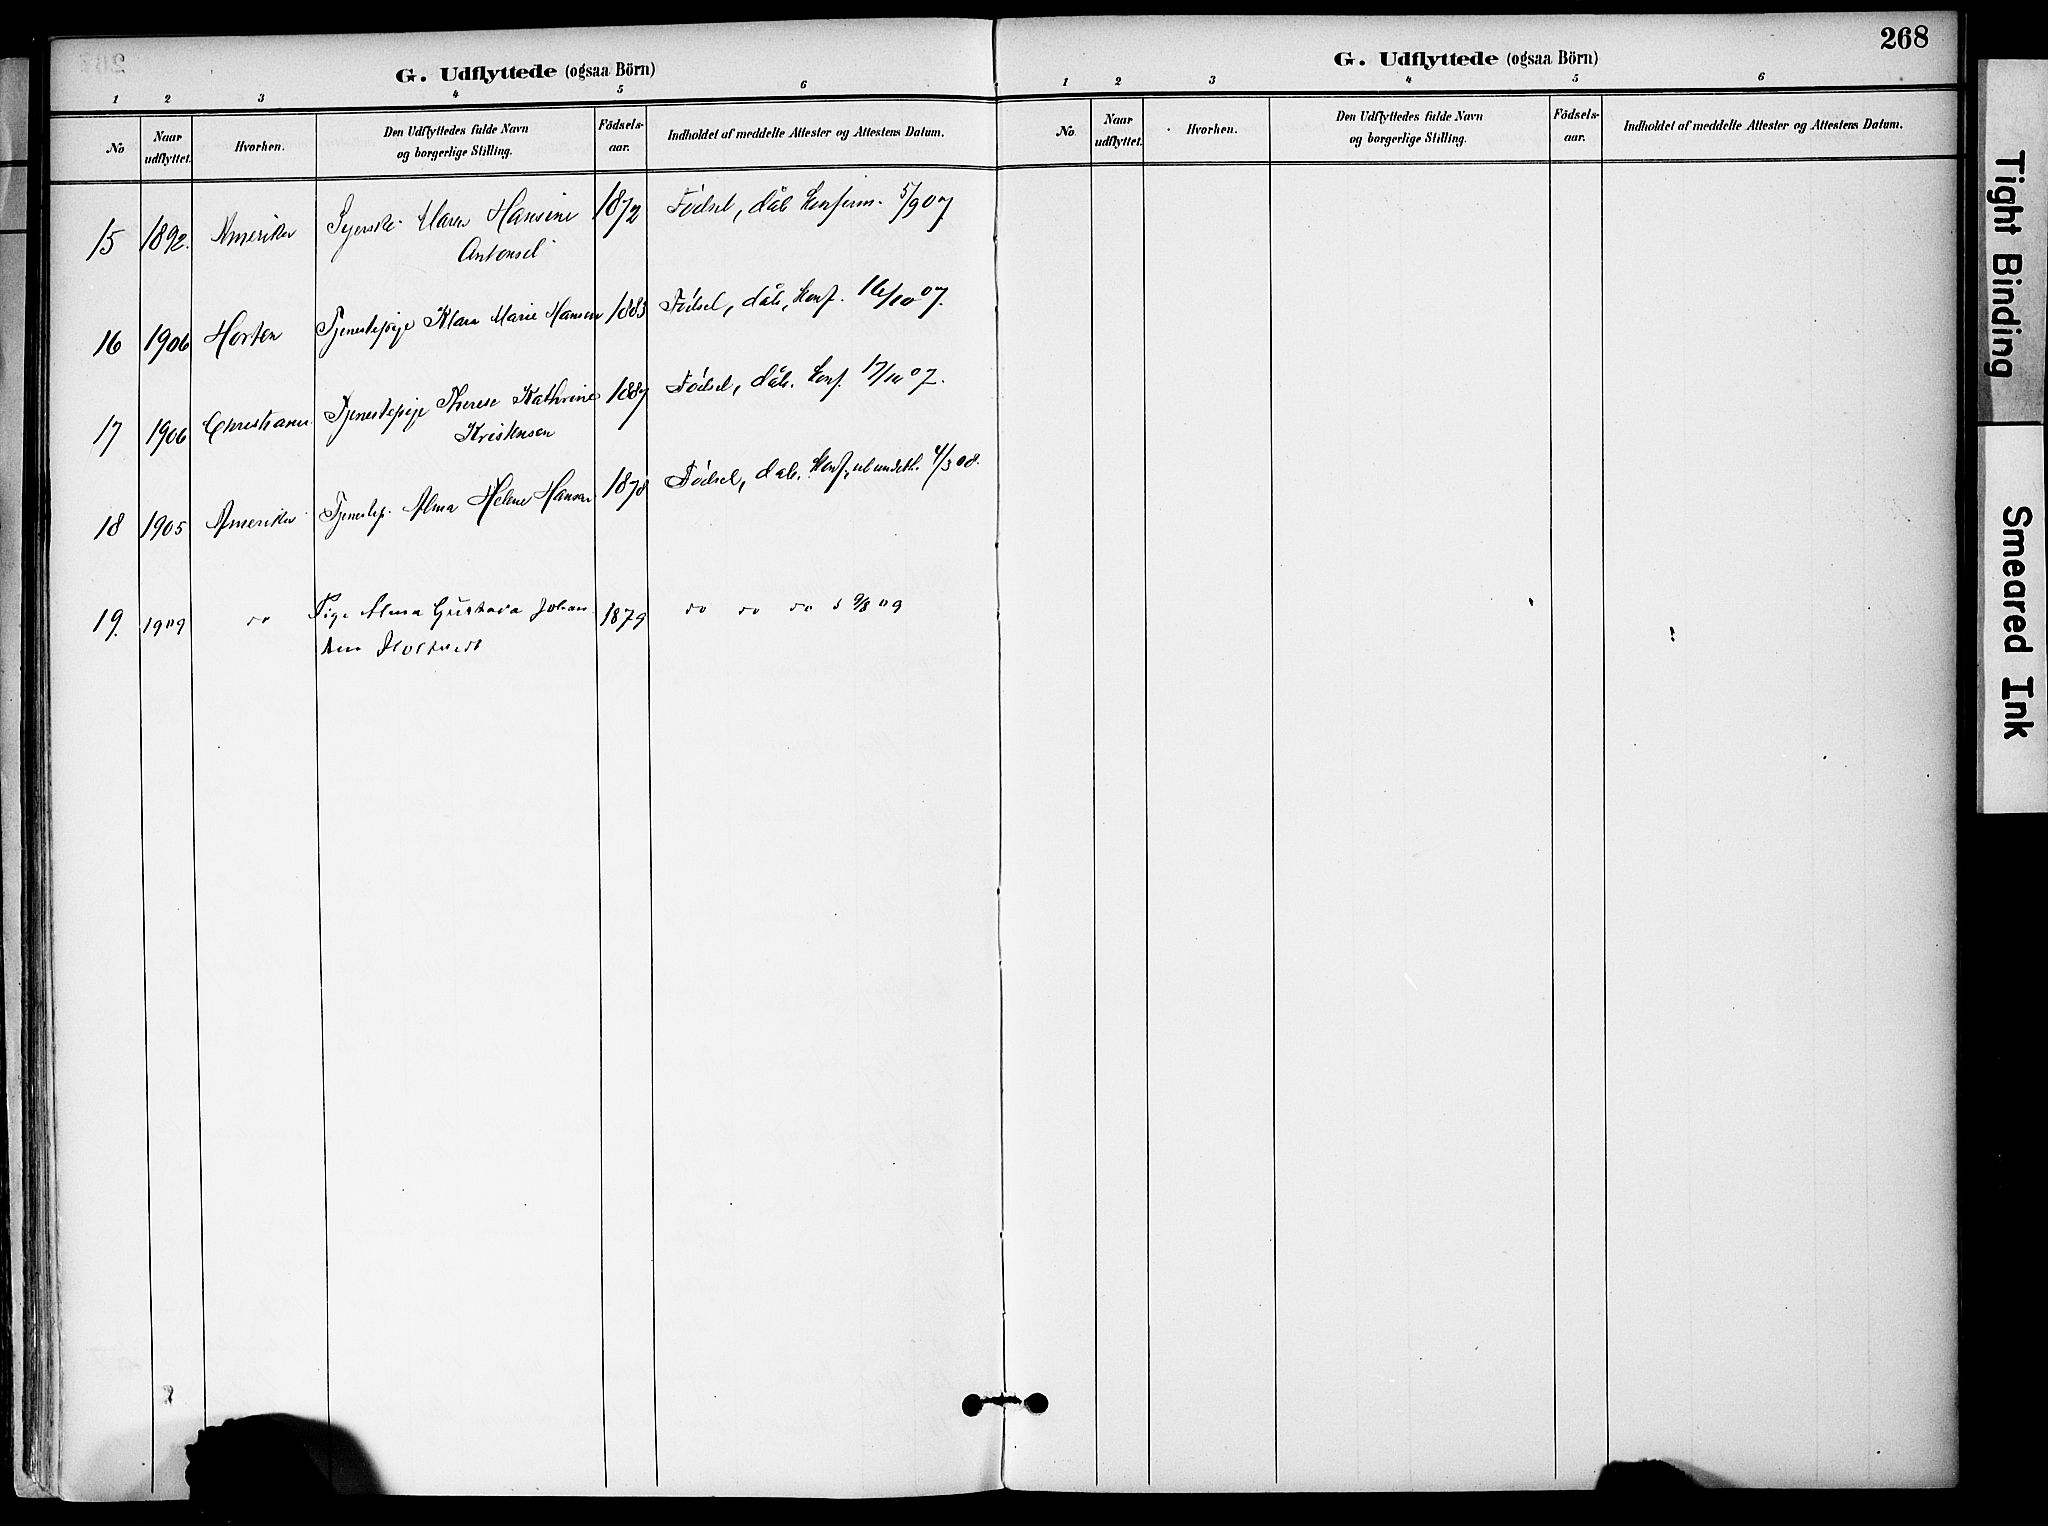 268
G. Udflyttede (ogsaa Börn)
1 2 3 4 5 6
No Naar udflyttet. Hvorhen. Den Udflyttedes fulde Navn og borgerlige Stilling. Födsels-aar. Indholdet af meddelte Attester og Attestens Datum.
15 1892. Amerika Syerske Maren Hansine 1872 Fødsel, dåb Konfirm. 5/9 07
Antonsel
16 1906 Horten Tjenestepige Klara Marie Hansen 1883 Fødsel, dåb, Konf. 16/10 07.
17 1906 Christiania Tjenestepige Therese Kathrine 1887 Fødsel, dåb. Konf. 17/10 07.
Kristensen
18 1905 Amerika Tjenestep. Alma Helene Hansen 1878 Fødsel, dåb. Konf, 4/3 08.
19. 1909 do Pige Alma Gustava Johan 1879 do do do 9/8 09
G. Udflyttede (ogsaa Börn)
1 2 3 4 5 6
No Naar udflyttet. Hvorhen. Den Udflyttedes fulde Navn og borgerlige Stilling. Födsels-aar. Indholdet af meddelte Attester og Attestens Datum.
Tight Binding
Smeared Ink